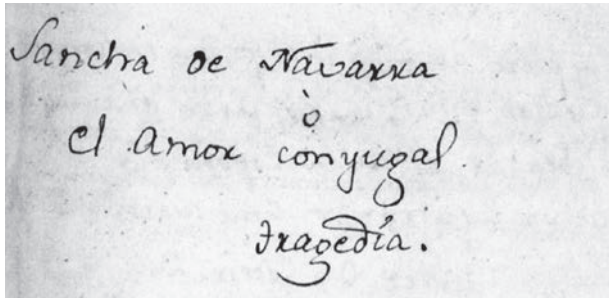 Sancha de Navarra
ò
el Amor conyugal
tragedía.